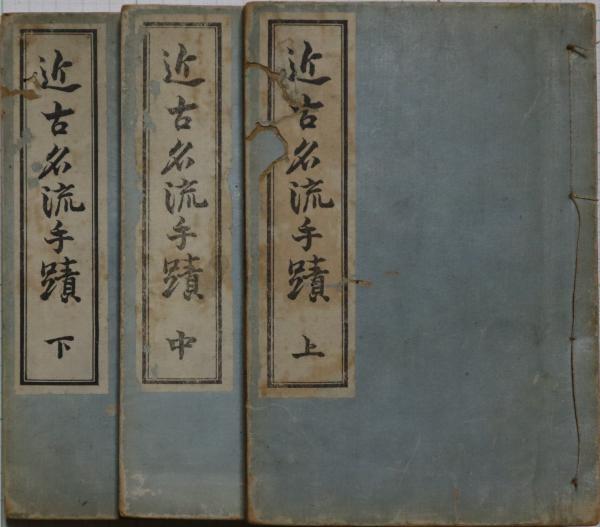 近古名流手蹟 上
近古名流手蹟 中
近古名流手蹟 下